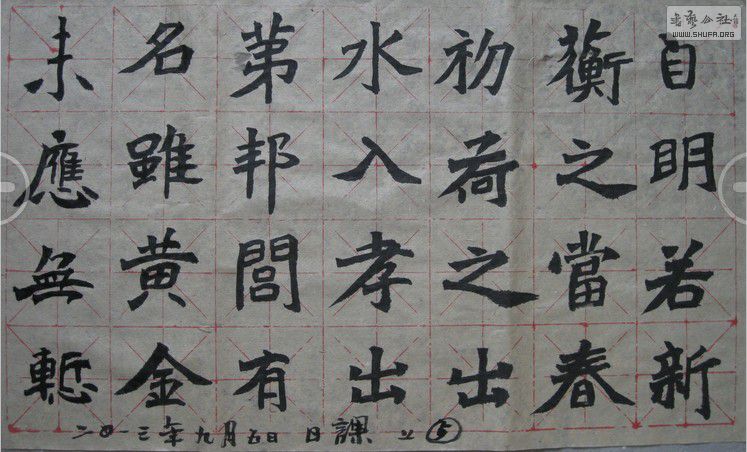 自明若新
蘅之當春
初荷之出
水入孝出
苐邦閭有
名雖黄金
未應無慙
二〇一三年九月五日 日課 之⑤
书艺公社
WWW.SHUFA.ORG